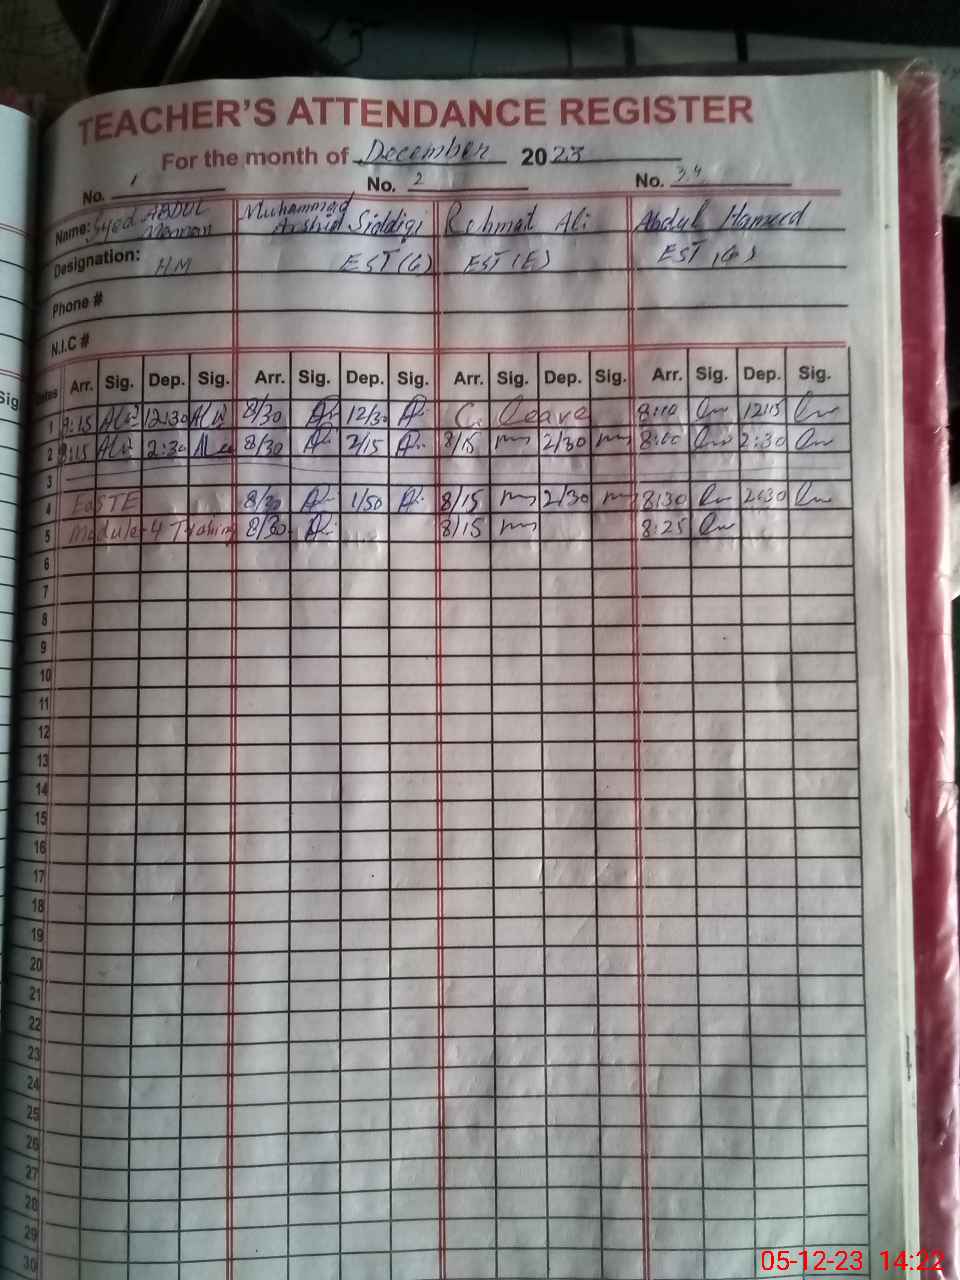 TEACHER'S ATTENDANCE REGISTER
For the month of December 2023
No. 1 No. 2 No. 3,4
Name: Syed ABDUL Mannan Muhammad Arshid Siddiqi Rehmat Ali Abdul Hameed
Designation: HM EST (G) EST (E) EST (G)
Phone #
N.I.C #
Dates Arr. Sig. Dep. Sig. Arr. Sig. Dep. Sig. Arr. Sig. Dep. Sig. Arr. Sig. Dep. Sig.
1 8:15 12:30 8/30 12/30 C. leave 8:10 12:15
2 8:15 2:30 8/30 2/15 8/15 2/30 8:00 2:30
3
4 EaSTE 8/30 1/50 8/15 2/30 8:30 2:30
5 Module-4 Training 8/30 8/15 8:25
6
7
8
9
10
11
12
13
14
15
16
17
18
19
20
21
22
23
24
25
26
27
28
29
30
Sig
05-12-23 14:22